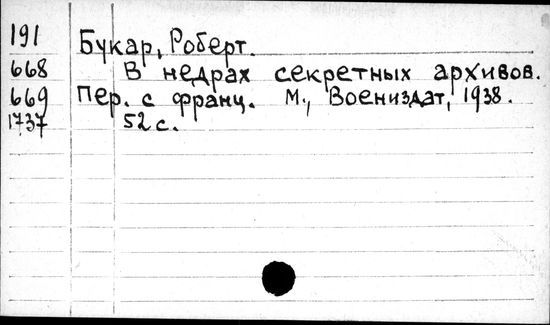 191 Букар, Роберт.
668 В недрах секретных архивов.
669 Пер. с франц. М., Воениздат, 1938.
1737 52 с.